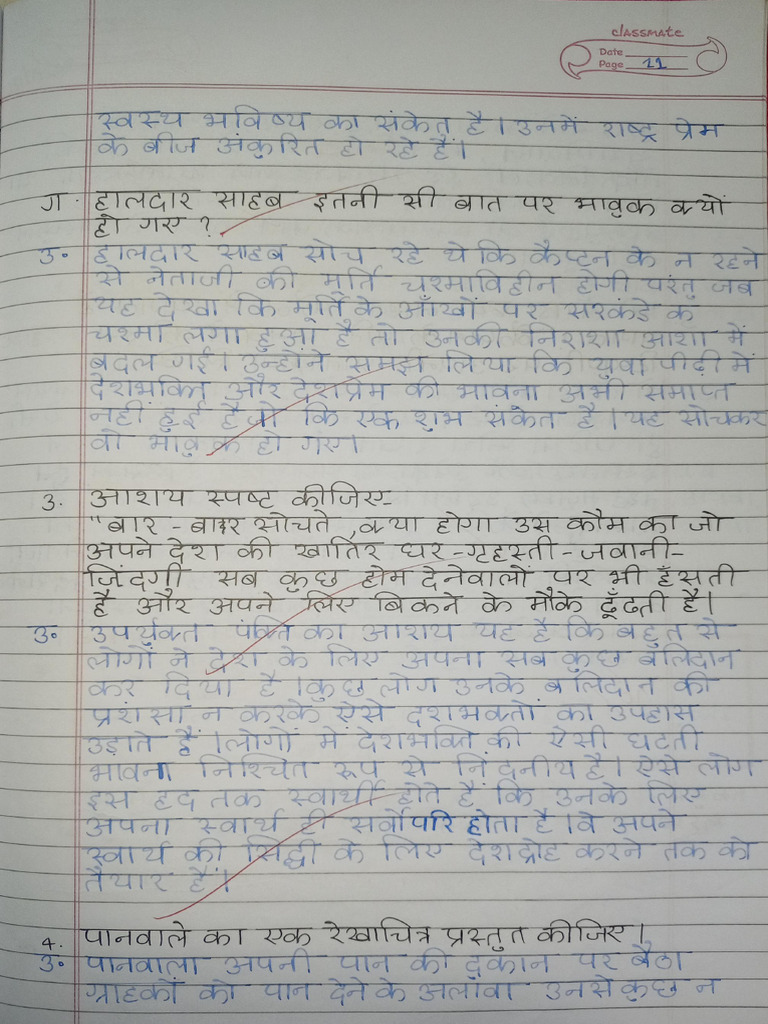 classmate
Date
Page 11
स्वस्थ भविष्य का संकेत है। उनमें राष्ट्र प्रेम
के बीज अंकुरित हो रहे हैं।
ग. हालदार साहब इतनी सी बात पर भावुक क्यों
हो गए ?
उ॰ हालदार साहब सोच रहे थे कि कैप्टन के न रहने
से नेताजी की मूर्ति चश्माविहीन होगी परंतु जब
यह देखा कि मूर्ति के आँखों पर सरकंडे के
चश्मा लगा हुआ है तो उनकी निराशा आशा में
बदल गई। उन्होंने समझ लिया कि युवा पीढ़ी में
देशभक्ति और देशप्रेम की भावना अभी समाप्त
नहीं हुई है जो कि एक शुभ संकेत है। यह सोचकर
वो भावुक हो गए।
3. आशय स्पष्ट कीजिए-
"बार-बार सोचते, क्या होगा उस कौम का जो
अपने देश की खातिर घर-गृहस्ती-जवानी-
जिंदगी सब कुछ होम देनेवालों पर भी हँसती
है और अपने लिए बिकने के मौके ढूँढती है।
उ॰ उपर्युक्त पंक्ति का आशय यह है कि बहुत से
लोगों ने देश के लिए अपना सब कुछ बलिदान
कर दिया है। कुछ लोग उनके बलिदान की
प्रशंसा न करके ऐसे देशभक्तों का उपहास
उड़ाते हैं। लोगों में देशभक्ति की ऐसी घटती
भावना निश्चित रूप से निंदनीय है। ऐसे लोग
इस हद तक स्वार्थी होते हैं कि उनके लिए
अपना स्वार्थ ही सर्वोपरि होता है। वे अपने
स्वार्थ की सिद्धी के लिए देशद्रोह करने तक को
तैयार हैं।
4. पानवाले का एक रेखाचित्र प्रस्तुत कीजिए।
उ॰ पानवाला अपनी पान की दुकान पर बैठा
ग्राहकों को पान देने के अलावा उनसे कुछ न